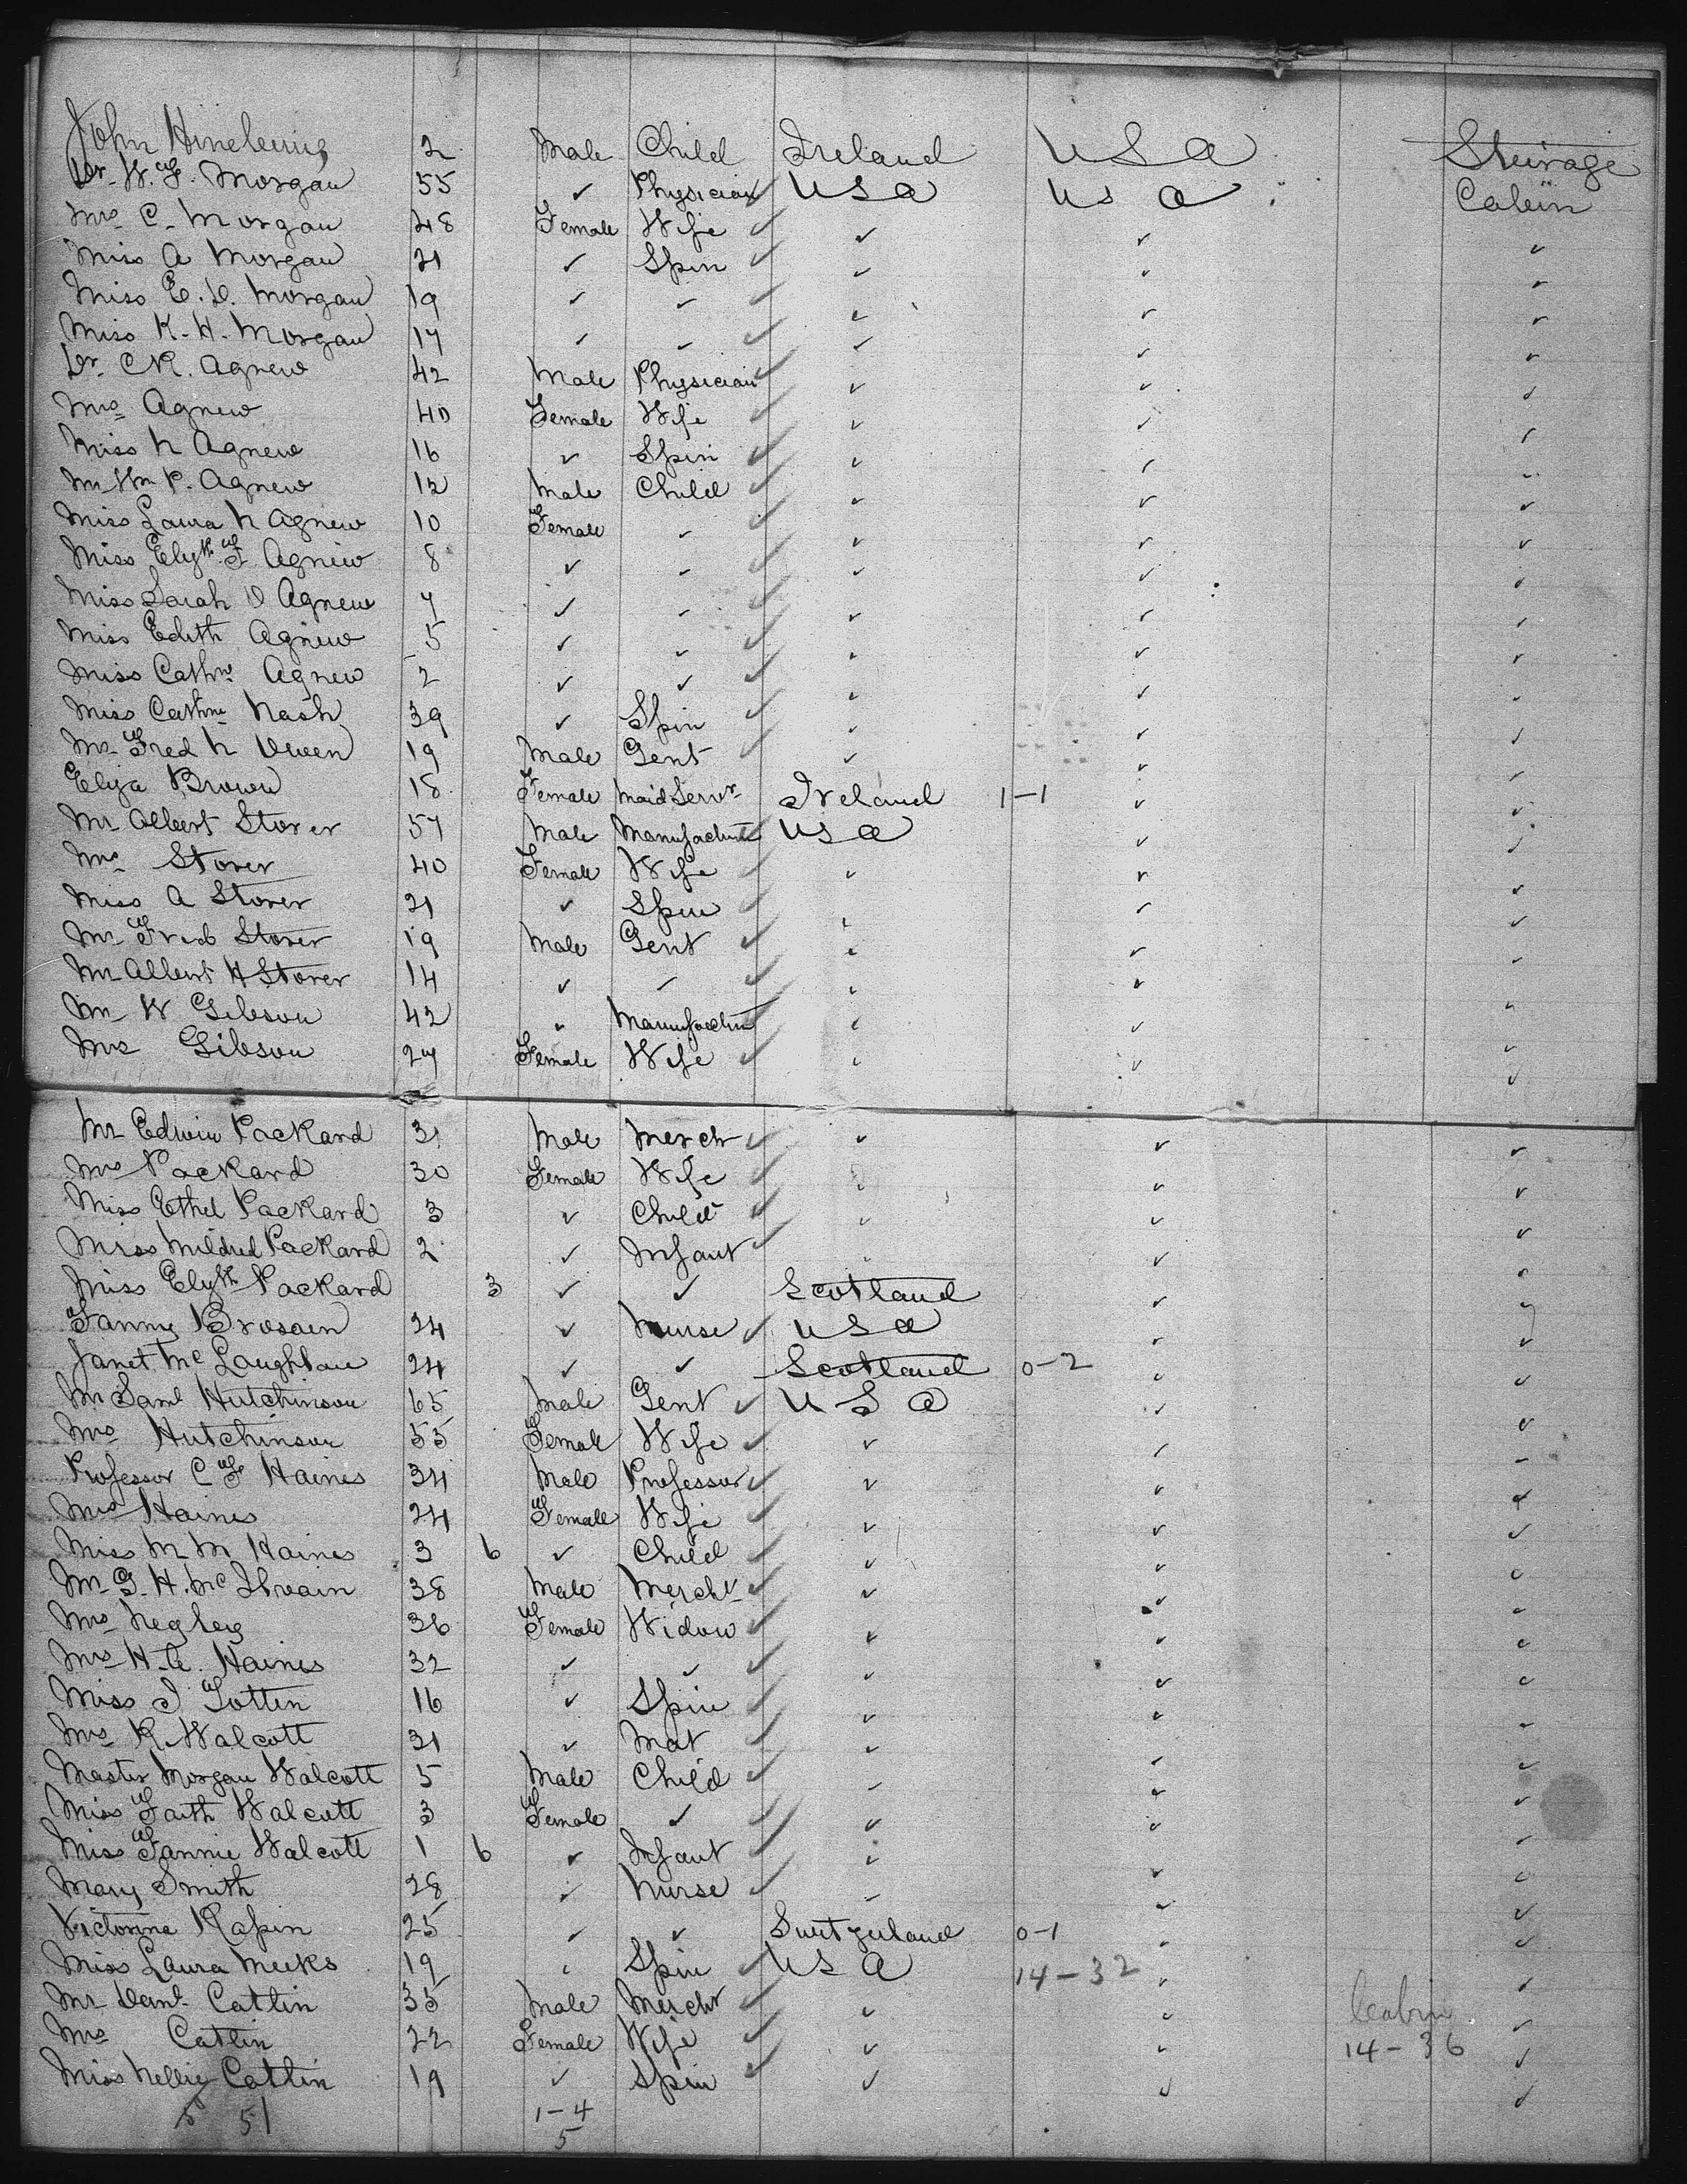 John 2 Male Child Ireland USA Steirage
Dr. W. F. Morgan 55 ✓ Physician USA USA Cabin
Mrs C. Morgan 48 Female Wife ✓ ✓ ✓
Miss A Morgan 21 ✓ Spin ✓ ✓ ✓
Miss E. D. Morgan 19 ✓ ✓ ✓ ✓ ✓
Miss K. H. Morgan 17 ✓ ✓ ✓ ✓ ✓
Dr. CR. Agnew 42 Male Physician ✓ ✓ ✓
Mrs Agnew 40 Female Wife ✓ ✓ ✓
Miss N Agnew 16 ✓ Spin ✓ ✓ ✓
Mr Wm P. Agnew 12 Male Child ✓ ✓ ✓
Miss Laura N Agnew 10 Female ✓ ✓ ✓ ✓
Miss Elizth F Agnew 8 ✓ ✓ ✓ ✓ ✓
Miss Sarah D Agnew 7 ✓ ✓ ✓ ✓ ✓
Miss Edith Agnew 5 ✓ ✓ ✓ ✓ ✓
Miss Cathne Agnew 2 ✓ ✓ ✓ ✓ ✓
Miss Cathne Nash 39 ✓ Spin ✓ ✓ ✓
Mr Fred N Owen 19 Male Gent ✓ ✓ ✓
Eliza Brown 18 Female Maid Servt Ireland 1-1 ✓ ✓
Mr Albert Storer 57 Male Manufactur USA ✓ ✓
Mrs Storer 40 Female Wife ✓ ✓ ✓
Miss A Storer 21 ✓ Spin ✓ ✓ ✓
Mr Fred Storer 19 Male Gent ✓ ✓ ✓
Mr Albert H Storer 14 ✓ ✓ ✓ ✓ ✓
Mr W Gibson 42 ✓ Manufactur ✓ ✓ ✓
Mrs Gibson 27 Female Wife ✓ ✓ ✓
Mr Edwin Packard 31 Male Merch ✓ ✓ ✓
Mrs Packard 30 Female Wife ✓ ✓ ✓
Miss Ethel Packard 3 ✓ Child ✓ ✓ ✓
Miss Mildred Packard 2 ✓ Infant ✓ ✓ ✓
Miss Elizth Packard 3 ✓ ✓ Scotland ✓ ✓
Fanny 24 ✓ Nurse USA ✓ ✓
Janet Mc Laughlan 24 ✓ ✓ Scotland 0-2 ✓ ✓
Mr Saml Hutchinson 65 Male Gent USA ✓ ✓
Mrs Hutchinson 55 Female Wife ✓ ✓ ✓
Professor C F Haines 34 Male Professor ✓ ✓ ✓
Mrs Haines 24 Female Wife ✓ ✓ ✓
Miss M M Haines 3 6 ✓ Child ✓ ✓ ✓
Mr G. H. Mc Ilvain 38 Male Mercht ✓ ✓ ✓
Mrs Negley 36 Female Widow ✓ ✓ ✓
Mrs H. A. Haines 32 ✓ ✓ ✓ ✓ ✓
Miss I Totten 16 ✓ Spin ✓ ✓ ✓
Mrs R. Walcott 31 ✓ Mat ✓ ✓ ✓
Master Morgan Walcott 5 Male Child ✓ ✓ ✓
Miss Faith Walcott 3 Female ✓ ✓ ✓ ✓
Miss Fannie Walcott 1 6 ✓ Infant ✓ ✓ ✓
Mary Smith 28 ✓ Nurse ✓ ✓ ✓
Victorine Rapin 25 ✓ ✓ Switzerland 0-1 ✓ ✓
Miss Laura Meeks 19 ✓ Spin USA 14-32 ✓ ✓
Mr Danl Catlin 35 Male Mercht ✓ ✓ Cabin ✓
Mrs Catlin 22 Female Wife ✓ ✓ 14-36 ✓
Miss Nellie Catlin 19 ✓ Spin ✓ ✓ ✓
51 1-4
5